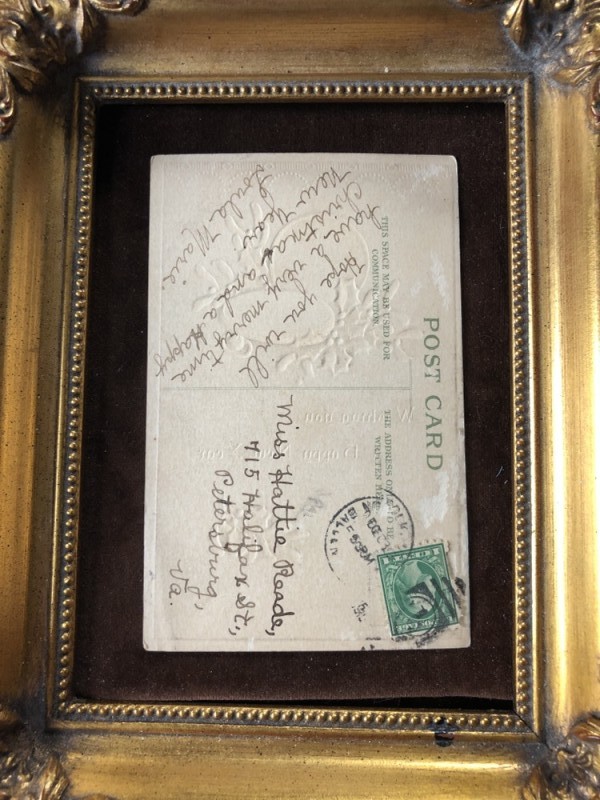 POST CARD
THIS SPACE MAY BE USED FOR
COMMUNICATION.
THE ADDRESS ONLY TO BE
WRITTEN HERE
Hope you will
have a very merry time
Christmas and a Happy
New Year
Loula Marie.
Miss Hattie Reade,
715 Halifax St.,
Petersburg,
Va.